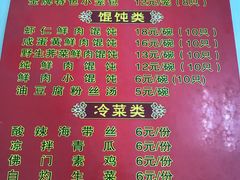 馄饨类
虾仁鲜肉馄饨 18元/碗(10只)
咸蛋黄鲜肉馄饨 16元/碗(10只)
野生荠菜鲜肉馄饨 12元/碗(10只)
纯鲜肉馄饨 12元/碗(10只)
鲜肉小馄饨 6元/碗
油豆腐粉丝汤 5元/碗
冷菜类
酸辣海带丝 6元/份
凉拌青瓜 6元/份
佛门素鸡 6元/份
白灼生菜 6元/份